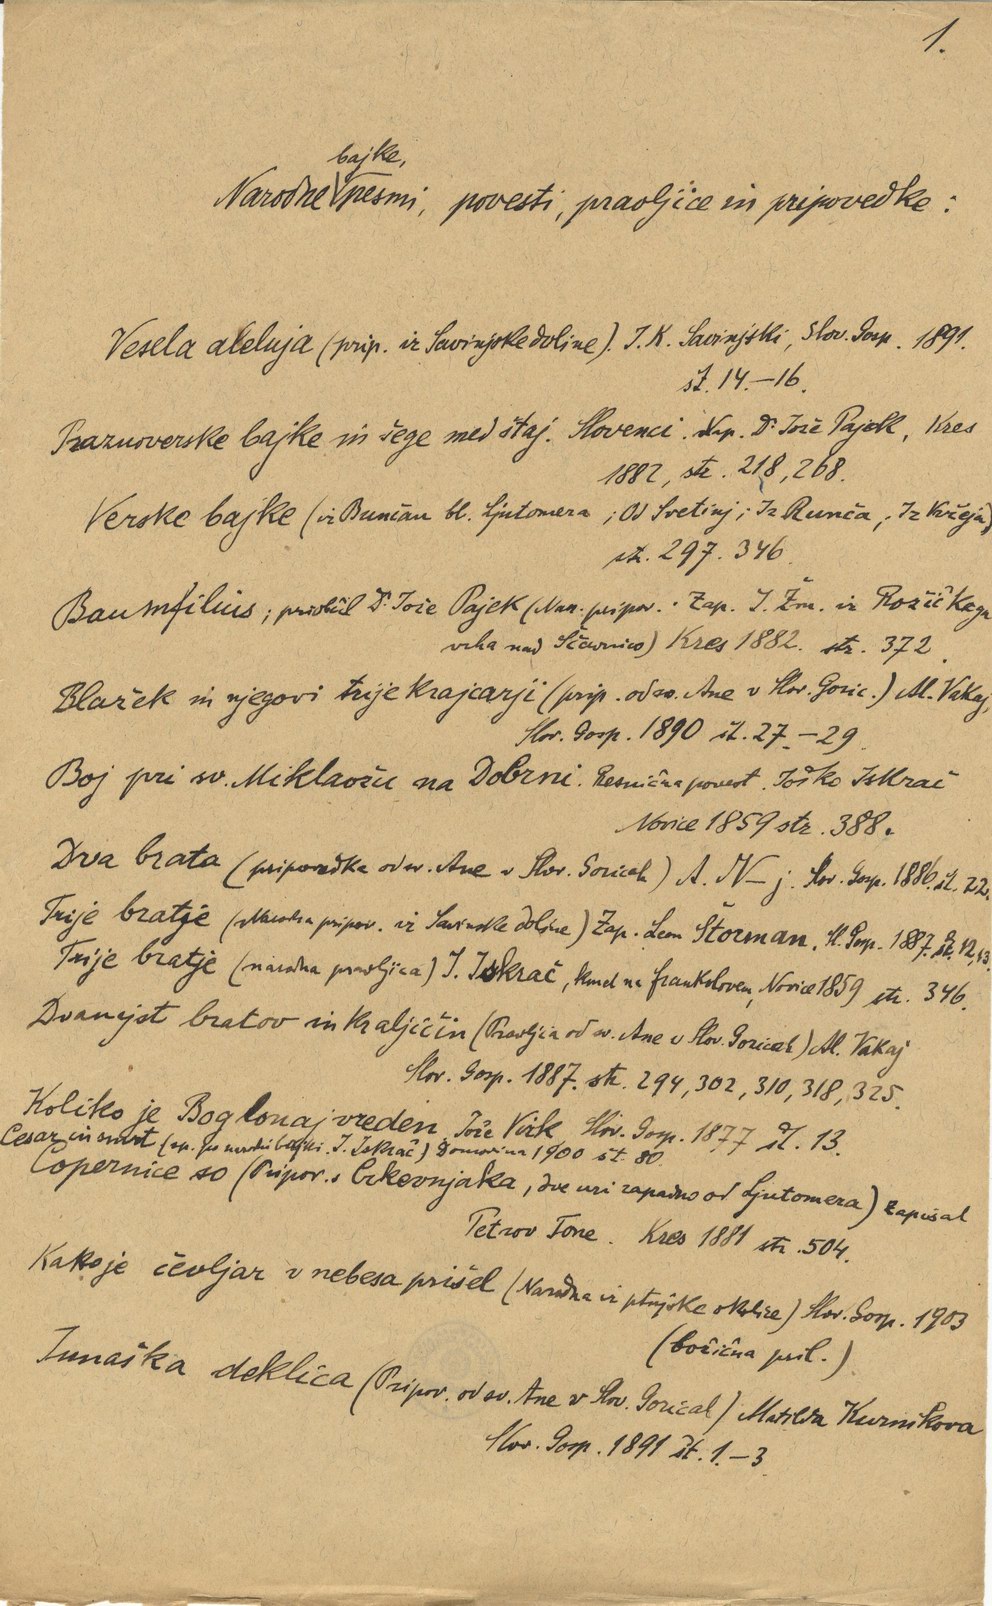 1.
bajke,
Narodne pesmi, povesti, pravljice in pripovedke:
Vesela aleluja (prip. iz Savinjske doline). I. K. Savinjski, Slov. Gosp. 1891.
št. 14.–16.
Praznoverske bajke in šege med štaj. Slovenci. Nap. Dr Jože Pajek, Kres
1882, str. 218, 268.
Verske bajke (iz Bunčan bl. Ljutomera; Od Svetinj; Iz Runča;
str. 297. 346
Baumfilius; priobčil Dr Jože Pajek (Nar. pripov. Zap. I. Žm. iz
vrha nad Ščavnico) Kres 1882. str. 372.
Blažek in njegovi trije krajcarji (prip. od sv. Ane v Slov. Goric.) Al. Vakaj,
Slov. Gosp. 1890 št. 27.–29.
Boj pri sv. Miklavžu na Dobrni. Resnična povest. Joško Iskrač
Novice 1859 str. 388.
Dva brata (pripovedka od sv. Ane v Slov. Goricah) A. N–j. Slov. Gosp. 1886. št. 22.
Trije bratje (Narodna pripov. iz Savinske doline) Zap. Leon Štorman. Sl. Gosp. 1887. št. 12, 13.
Trije bratje (narodna pravljica) J. Iskrač, kmet na Frankolovem, Novice 1859 str. 346.
Dvanajst bratov in kraljičin (Pravljica od sv. Ane v Slov. Goricah) Al. Vakaj
Slov. Gosp. 1887. str. 294, 302, 310, 318, 325.
Koliko je Boglonaj vreden. Jože Virk Slov. Gosp. 1877 št. 13.
Cesar in smrt (sp. po narodni bajki. J. Iskrač) Domovina 1900 št. 80.
Copernice so (Pripov. s Crkovnjaka, dve uri zapadno od Ljutomera) zapisal
Petrov Tone. Kres 1881 str. 504.
Kako je čevljar v nebesa prišel (Narodna iz ptujske okolice) Slov. Gosp. 1903
(božična pril.)
Junaška deklica (Pripov. od sv. Ane v Slov. Goricah) Matilda Kurnikova
Slov. Gosp. 1891 št. 1.–3.